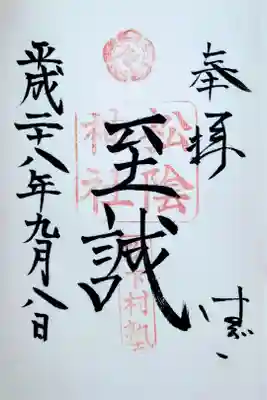 奉拝
至誠
松陰
神社
平成二十八年九月八日